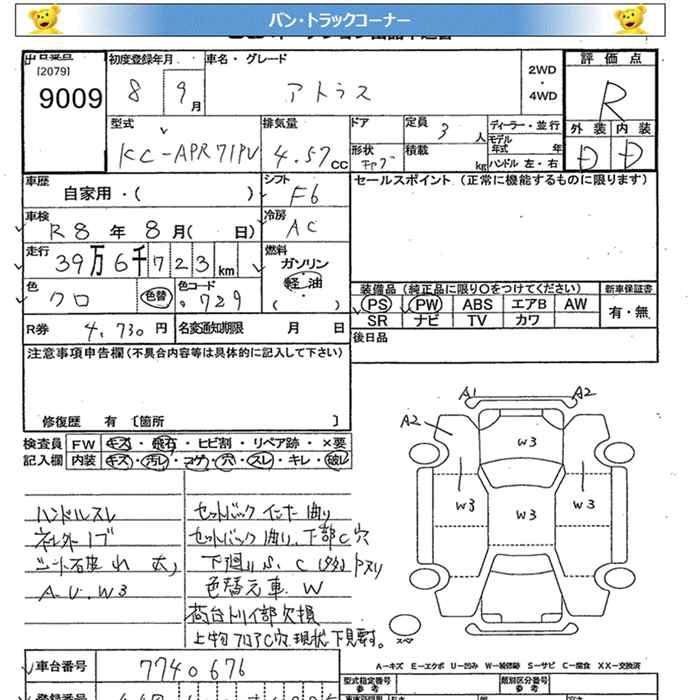 バン・トラックコーナー
[2079]
9009
初度登録年月
8 9月
車名・グレード
アトラス
2WD
・
4WD
評価点
R
外装 内装
D D
型式
KC-APR71PV
排気量
4.57cc
ドア
形状
キャブ
定員 3人
積載 kg
ディーラー・並行
モデル年式 年
ハンドル 左・右
車歴
自家用・( )
シフト
F6
セールスポイント (正常に機能するものに限ります)
車検
R8年8月( 日)
冷房
AC
走行
39万6千723km
燃料
ガソリン
軽油
( )
色
クロ 色替
色コード
729
装備品 (純正品に限り○をつけてください)
新車保証書
PS PW ABS エアB AW
SR ナビ TV カワ
有・無
R券 4,730円
名変通知期限 月 日
後日品
注意事項申告欄(不具合内容等は具体的に記入して下さい)
修復歴 有 〔箇所 〕
検査員
記入欄
FW キズ・飛石・ヒビ割・リペア跡・×要
内装 キズ・汚レ・コゲ・穴・スレ・キレ・破レ
ハンドルスレ
A.U.W3
セットバック インナー曲り
セットバック曲り、下部C穴
下廻りS、C
色替元車 W
荷台トリイ部欠損
上物フロアC穴 現状下見要す。
A1 A2
A2
W3
W3 W3 W3
スペア
A-キズ E-エクボ U-凹み W-補修跡 S-サビ C-腐食 XX-交換済
車台番号
7740676
登録番号
型式指定番号
参考
類別区分番号
参考